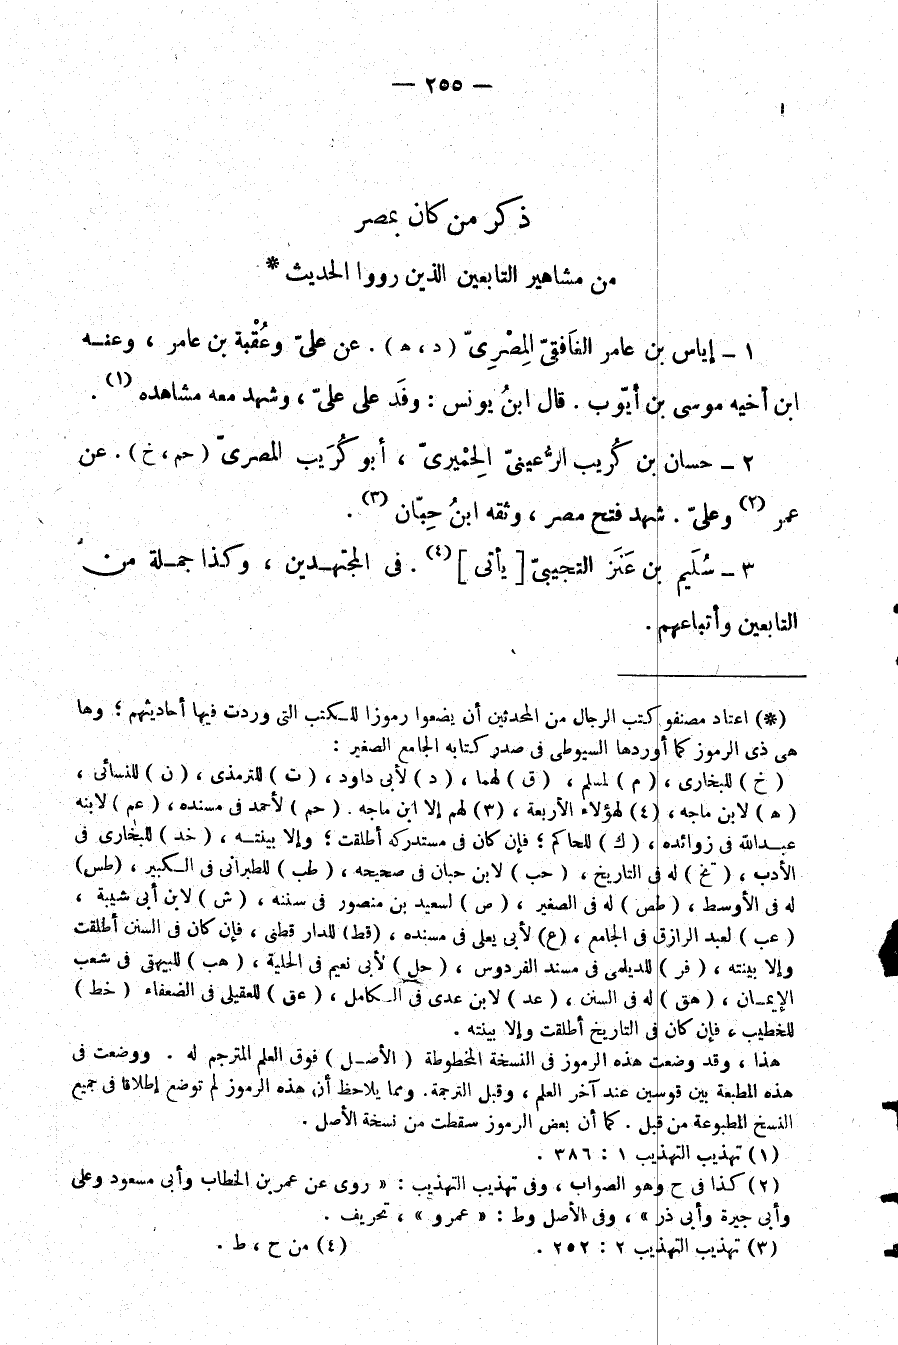 — ٢٥٥ —
ذكر من كان بمصر
من مشاهير التابعين الذين رووا الحديث *
١ – إياس بن عامر الغَافقىّ المِصْرِىّ ( د ، ه ) . عن علىّ وعُقْبة بن عامر ، وعنـه
ابن أخيه موسى بن أيّوب . قال ابنُ يونس : وفَد على علىّ ، وشهد معه مشاهده (١) .
٢ – حسان بن كُريب الرُّعينىّ الحِمْيرىّ ، أبو كُرَيب المصرىّ ( حم ، خ ) . عن
عمر (٢) وعلىّ . شهد فتح مصر ، وثقه ابنُ حِبّان (٣) .
٣ – سُلَيم بن عَنَزَ التجيبىّ [ يأتى ] (٤) . فى المجتهـدين ، وكذا جمـلة من
التابعين وأتباعهم .
(*) اعتاد مصنفو كتب الرجال من المحدثين أن يضعوا رموزا للـكتب التى وردت فيها أحاديثهم ؛ وها
هى ذى الرموز كما أوردها السيوطى فى صدر كتابه الجامع الصغير :
( خ ) للبخارى ، ( م ) لمسلم ، ( ق ) لهما ، ( د ) لأبى داود ، ( ت ) للترمذى ، ( ن ) للنسائى ،
( ه ) لابن ماجه ، (٤) لهؤلاء الأربعة ، (٣) لهم إلا ابن ماجه . ( حم ) لأحمد فى مسنده ، ( عم ) لابنه
عبـدالله فى زوائده ، ( ك ) للحاكم ؛ فإن كان فى مستدركه أطلقت ؛ وإلا بينتـه ، ( خد ) للبخارى فى
الأدب ، ( تخ ) له فى التاريخ ، ( حب ) لابن حبان فى صحيحه ، ( طب ) للطبرانى فى الـكبير ، (طس)
له فى الأوسط ، ( طص ) له فى الصغير ، ( ص ) لسعيد بن منصور فى سننه ، ( ش ) لابن أبى شيبة ،
( عب ) لعبد الرازق فى الجامع ، (ع) لأبى يعلى فى مسنده ، (قط) للدار قطنى ، فإن كان فى السنن أطلقت
وإلا بينته ، ( فر ) للديلمى فى مسند الفردوس ، ( حل ) لأبى نعيم فى الحلية ، ( هب ) للبيهقى فى شعب
الإيمـان ، ( هق ) له فى السنن ، ( عد ) لابن عدى فى الـكامل ، ( عق ) للعقيلى فى الضعفاء ( خط )
للخطيب ، فإن كان فى التاريخ أطلقت وإلا بينته .
هذا ، وقد وضعت هذه الرموز فى النسخة المخطوطة ( الأصـل ) فوق العلم المترجم له . ووضعت فى
هذه المطبعة بين قوسين عند آخر العلم ، وقبل الترجمة . ومما يلاحظ أن هذه الرموز لم توضع إطلاقا فى جميع
النسخ المطبوعة من قبل . كما أن بعض الرموز سقطت من نسخة الأصل .
(١) تهذيب التهذيب ١ : ٣٨٦ .
(٢) كذا فى ح وهو الصواب ، وفى تهذيب التهذيب : « روى عن عمر بن الخطاب وأبى مسعود وعلى
وأبى جيرة وأبى ذر » ، وفى الأصل وط : « عمرو » ، تحريف .
(٣) تهذيب التهذيب ٢ : ٢٥٢ . (٤) من ح ، ط .